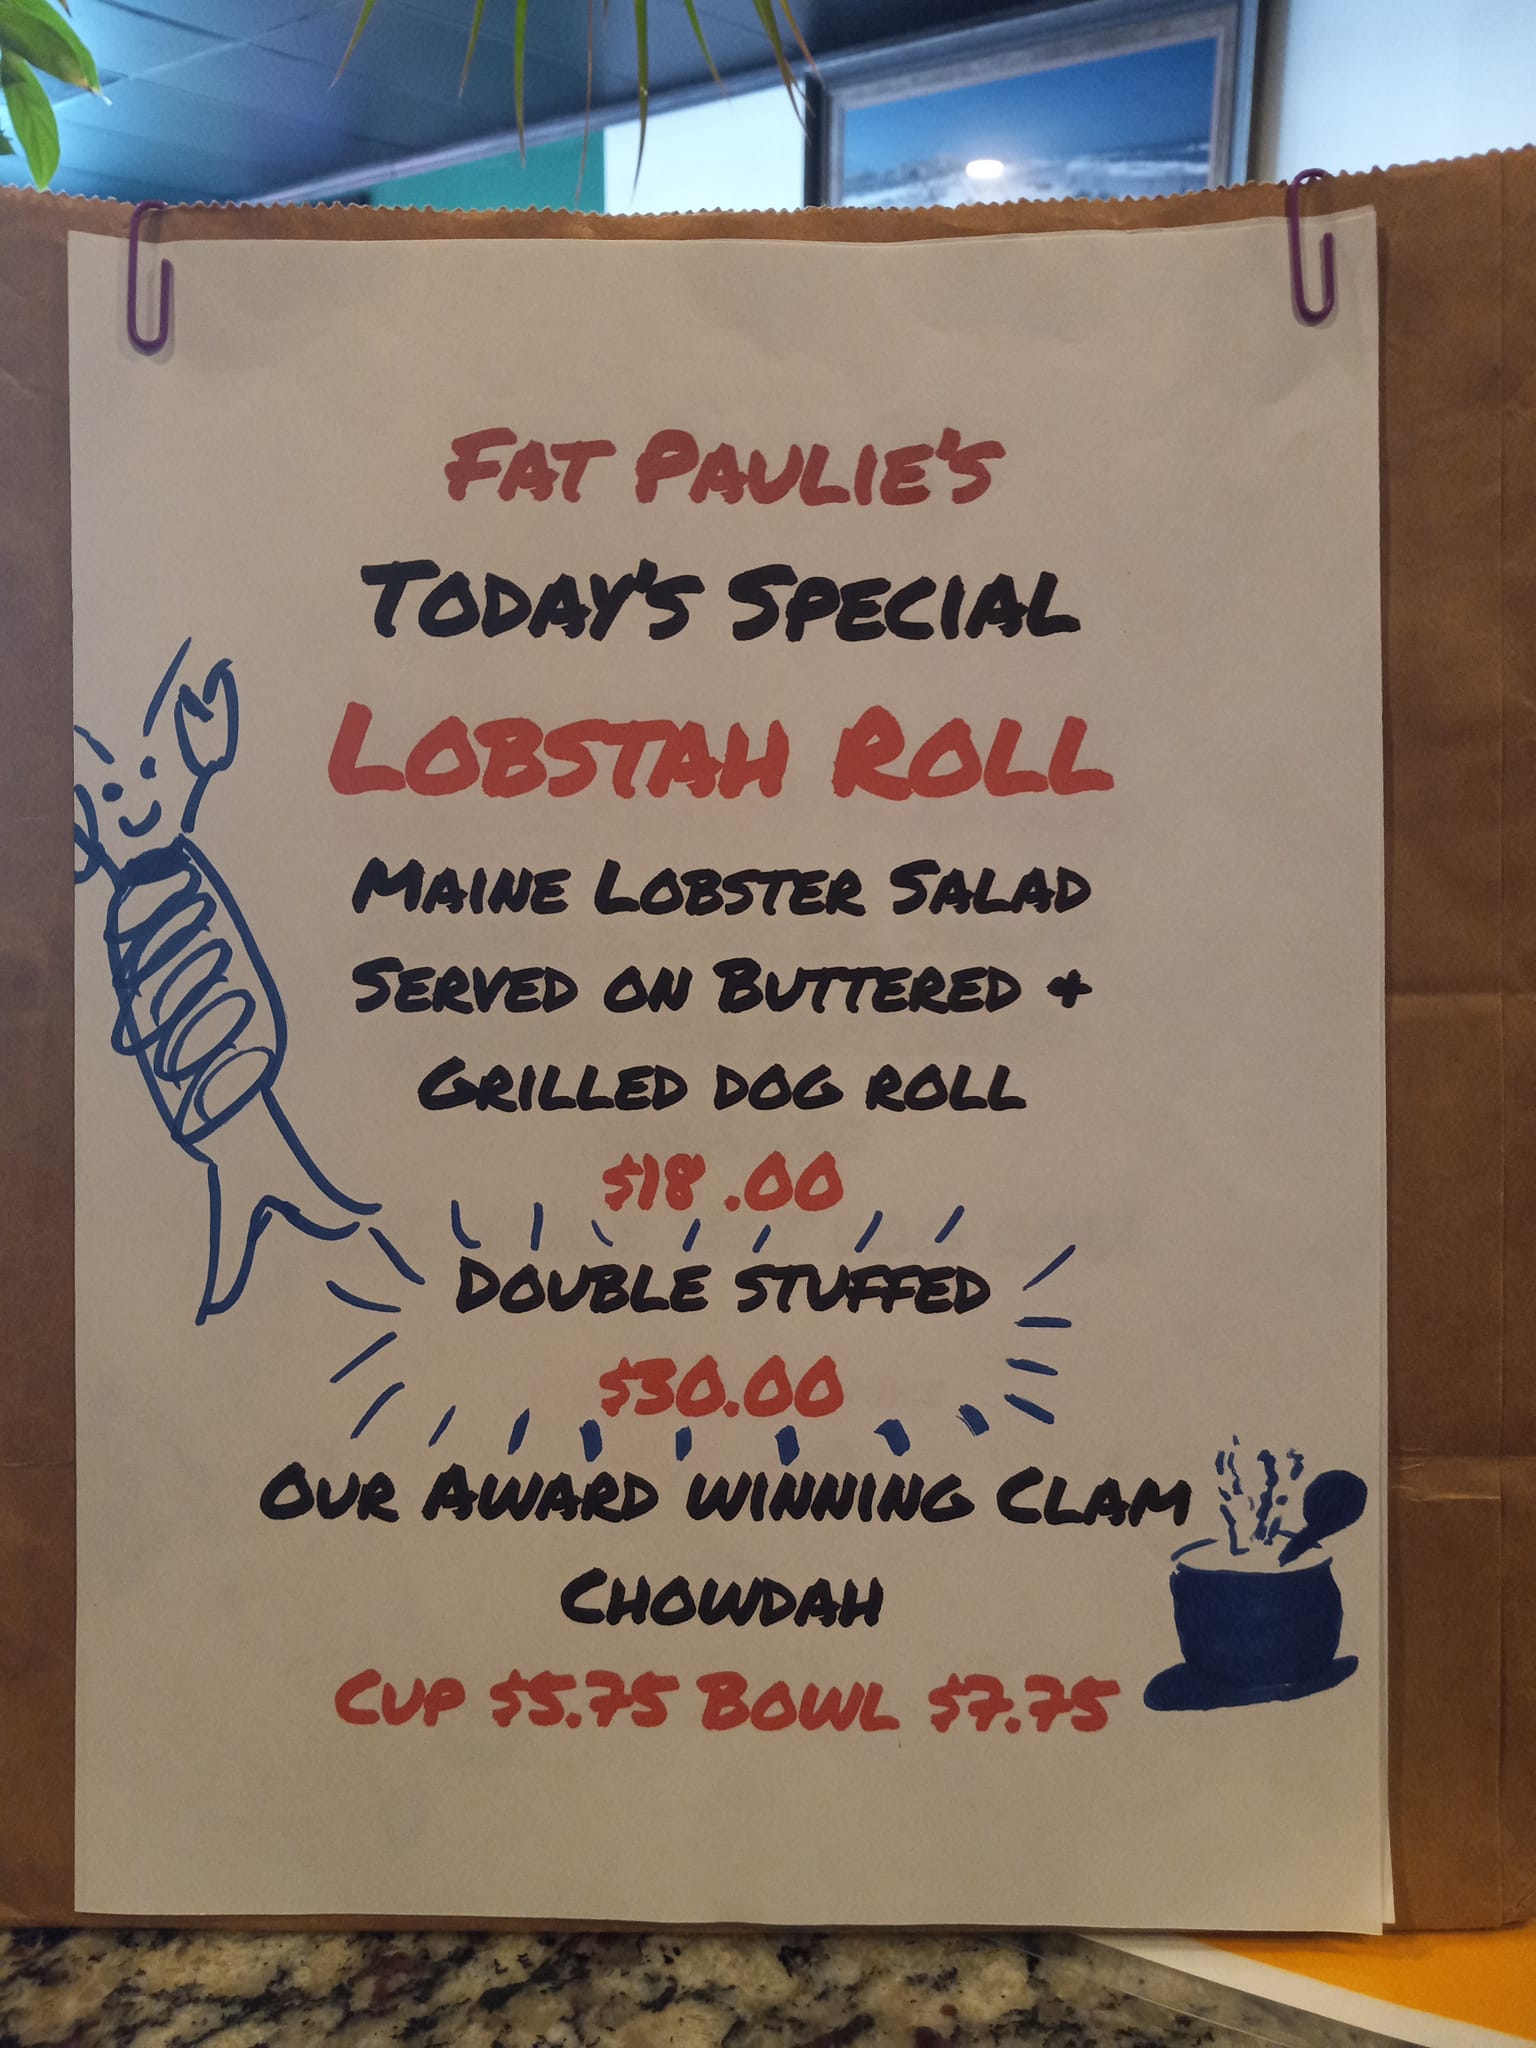 FAT PAULIE'S
TODAY'S SPECIAL
LOBSTAH ROLL
MAINE LOBSTER SALAD
SERVED ON BUTTERED &
GRILLED DOG ROLL
$18 .00
DOUBLE STUFFED
$30.00
OUR AWARD WINNING CLAM
CHOWDAH
CUP $5.75 BOWL $7.75